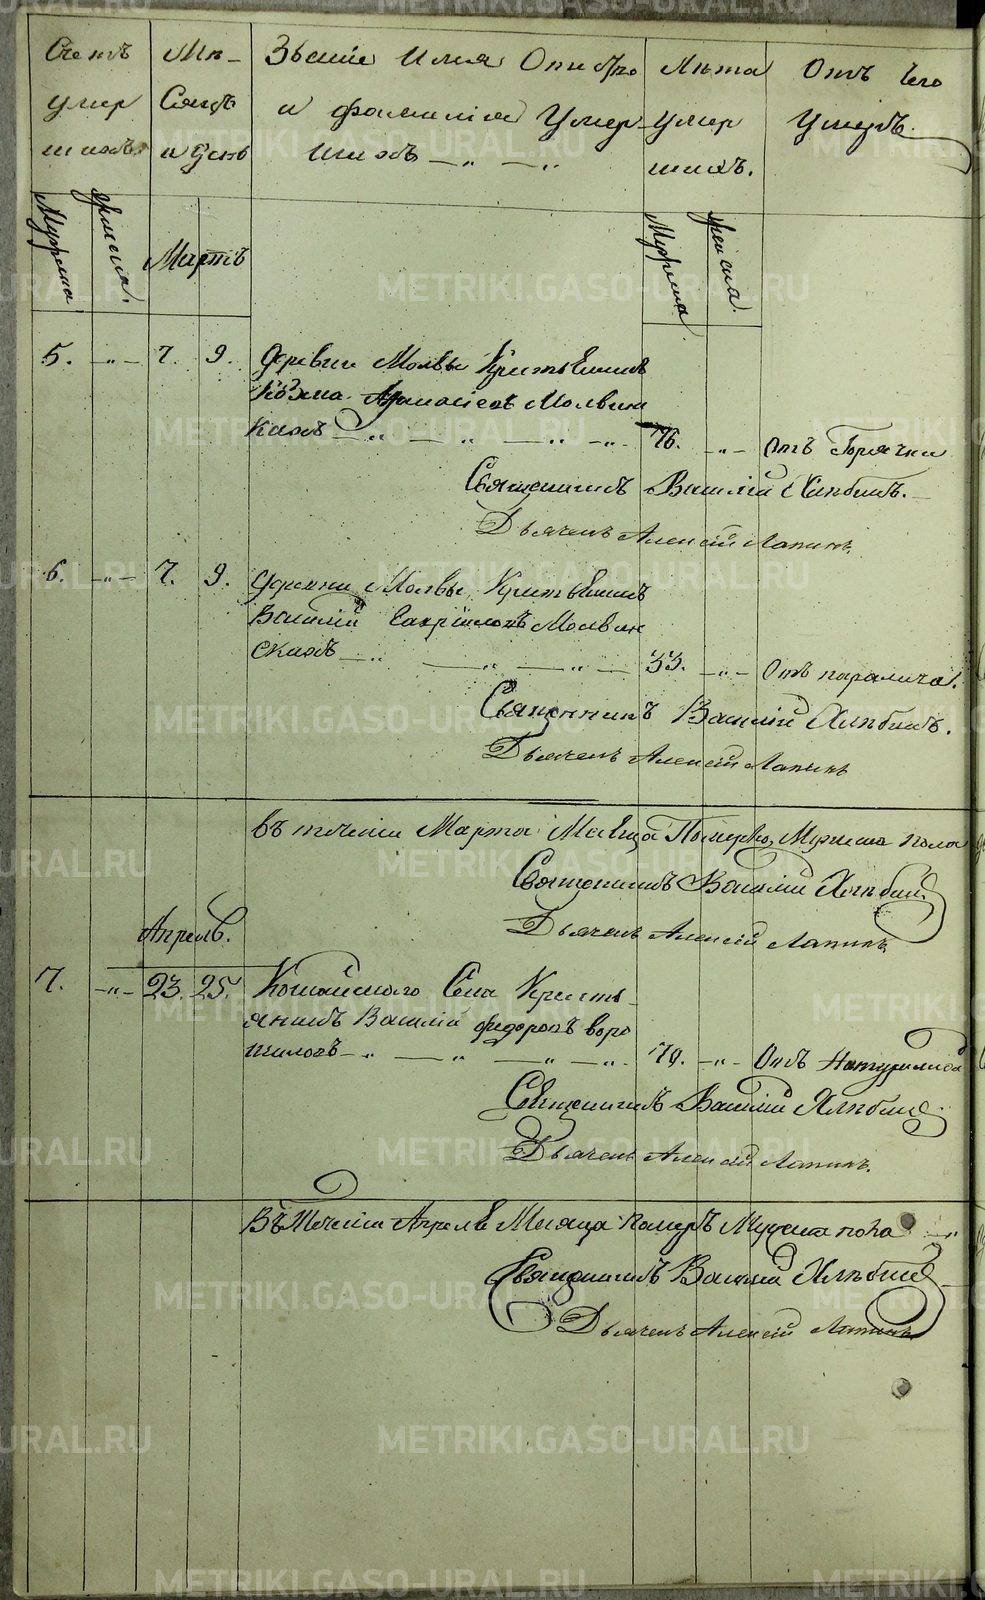 Счетъ умер шихъ.
Мѣ- сяцъ и день
Званіе Имя Отчество и фамилія Умер шихъ
Лѣта умер шихъ.
Отъ чего Умеръ.
Мужеска
женска.
Мартъ
Мужеска
женска.
5. -„- 7. 9. Деревни Молвы Крестьянинъ
Козма Афанасіевъ Молвин
скихъ -„- -„- -„- 76. -„- Отъ Горячки
Священникъ Василій Хлѣбинъ.
Дьячекъ Алексѣй Лапинъ.
6. -„- 7. 9. Деревни Молвы Крестьянинъ
Василій Гавріиловъ Молвин
скихъ -„- -„- -„- 33. -„- Отъ паралича.
Священникъ Василій Хлѣбинъ.
Дьячекъ Алексѣй Лапинъ
Въ теченіи Марта Месяца Померло Мужеска пола
Священникъ Василій Хлѣбинъ
Дьячекъ Алексѣй Лапинъ
Апрель.
7. -„- 23. 25. Кошайского Села Кресть-
янинъ Василій Федоровъ Воро
шиловъ -„- -„- -„- 70. -„- Отъ Натуральной
Священникъ Василій Хлѣбинъ
Дьячекъ Алексѣй Лапинъ.
Въ Теченіи Апреля Месяца померъ Мужеска пола -„-
Священникъ Василій Хлѣбинъ
Дьячекъ Алексѣй Лапинъ
METRIKI.GASO-URAL.RU